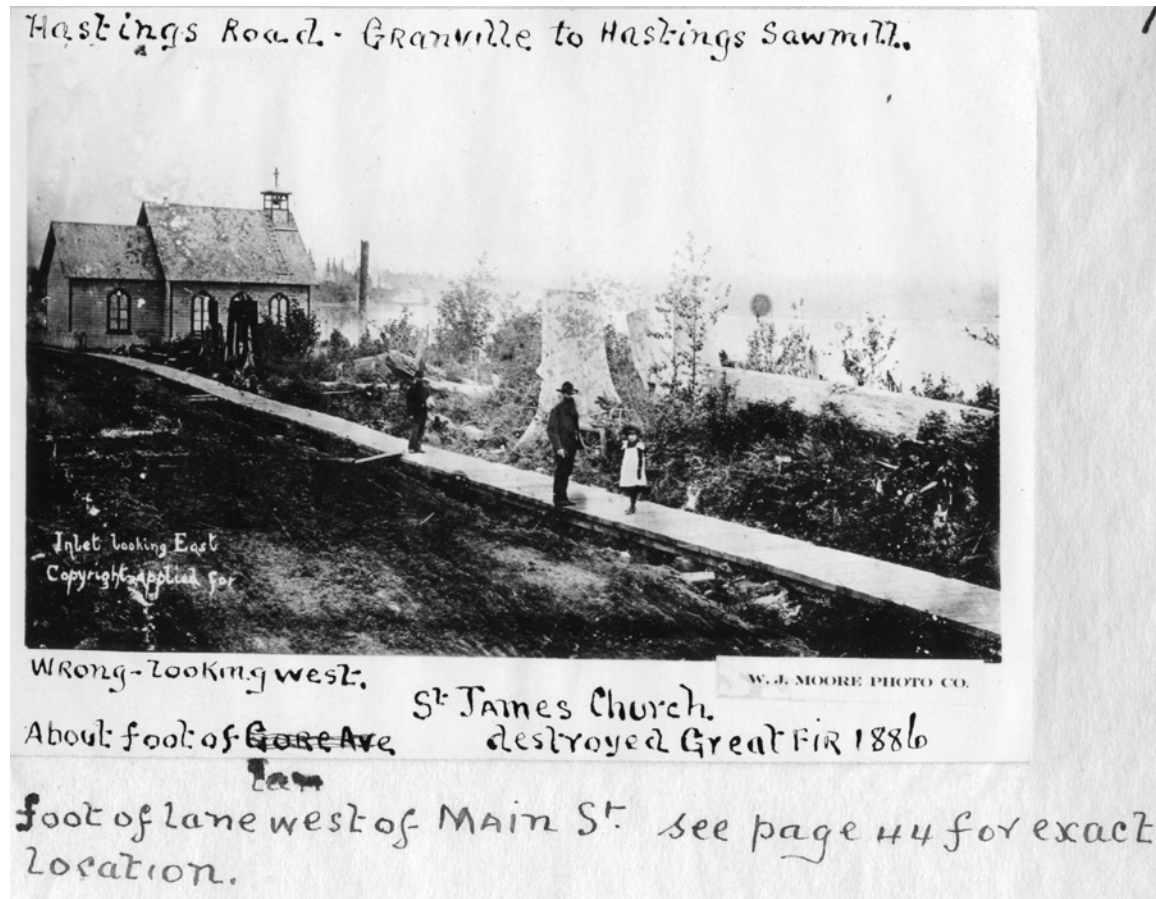 Hastings Road - Granville to Hastings Sawmill.
Inlet looking East
Copyright applied for
Wrong - looking west.
W. J. MOORE PHOTO CO.
St James Church.
About foot of Gore Ave
destroyed Great FIR 1886
Lan
foot of lane west of MAIN St. see page 44 for exact
location.